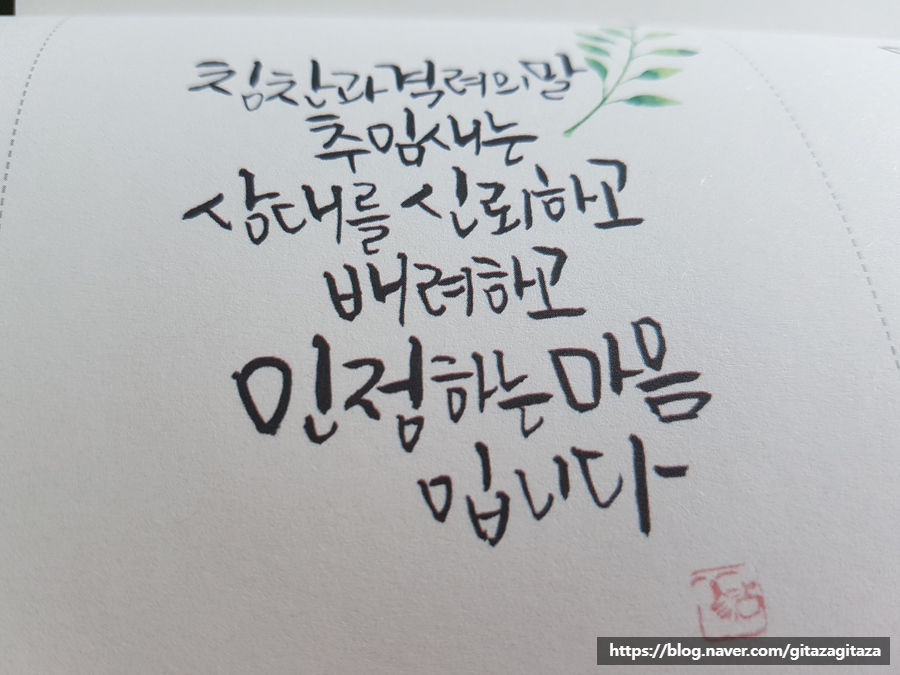 칭찬과격려의말
추임새는
상대를 신뢰하고
배려하고
인정하는마음
입니다
https://blog.naver.com/gitazagitaza